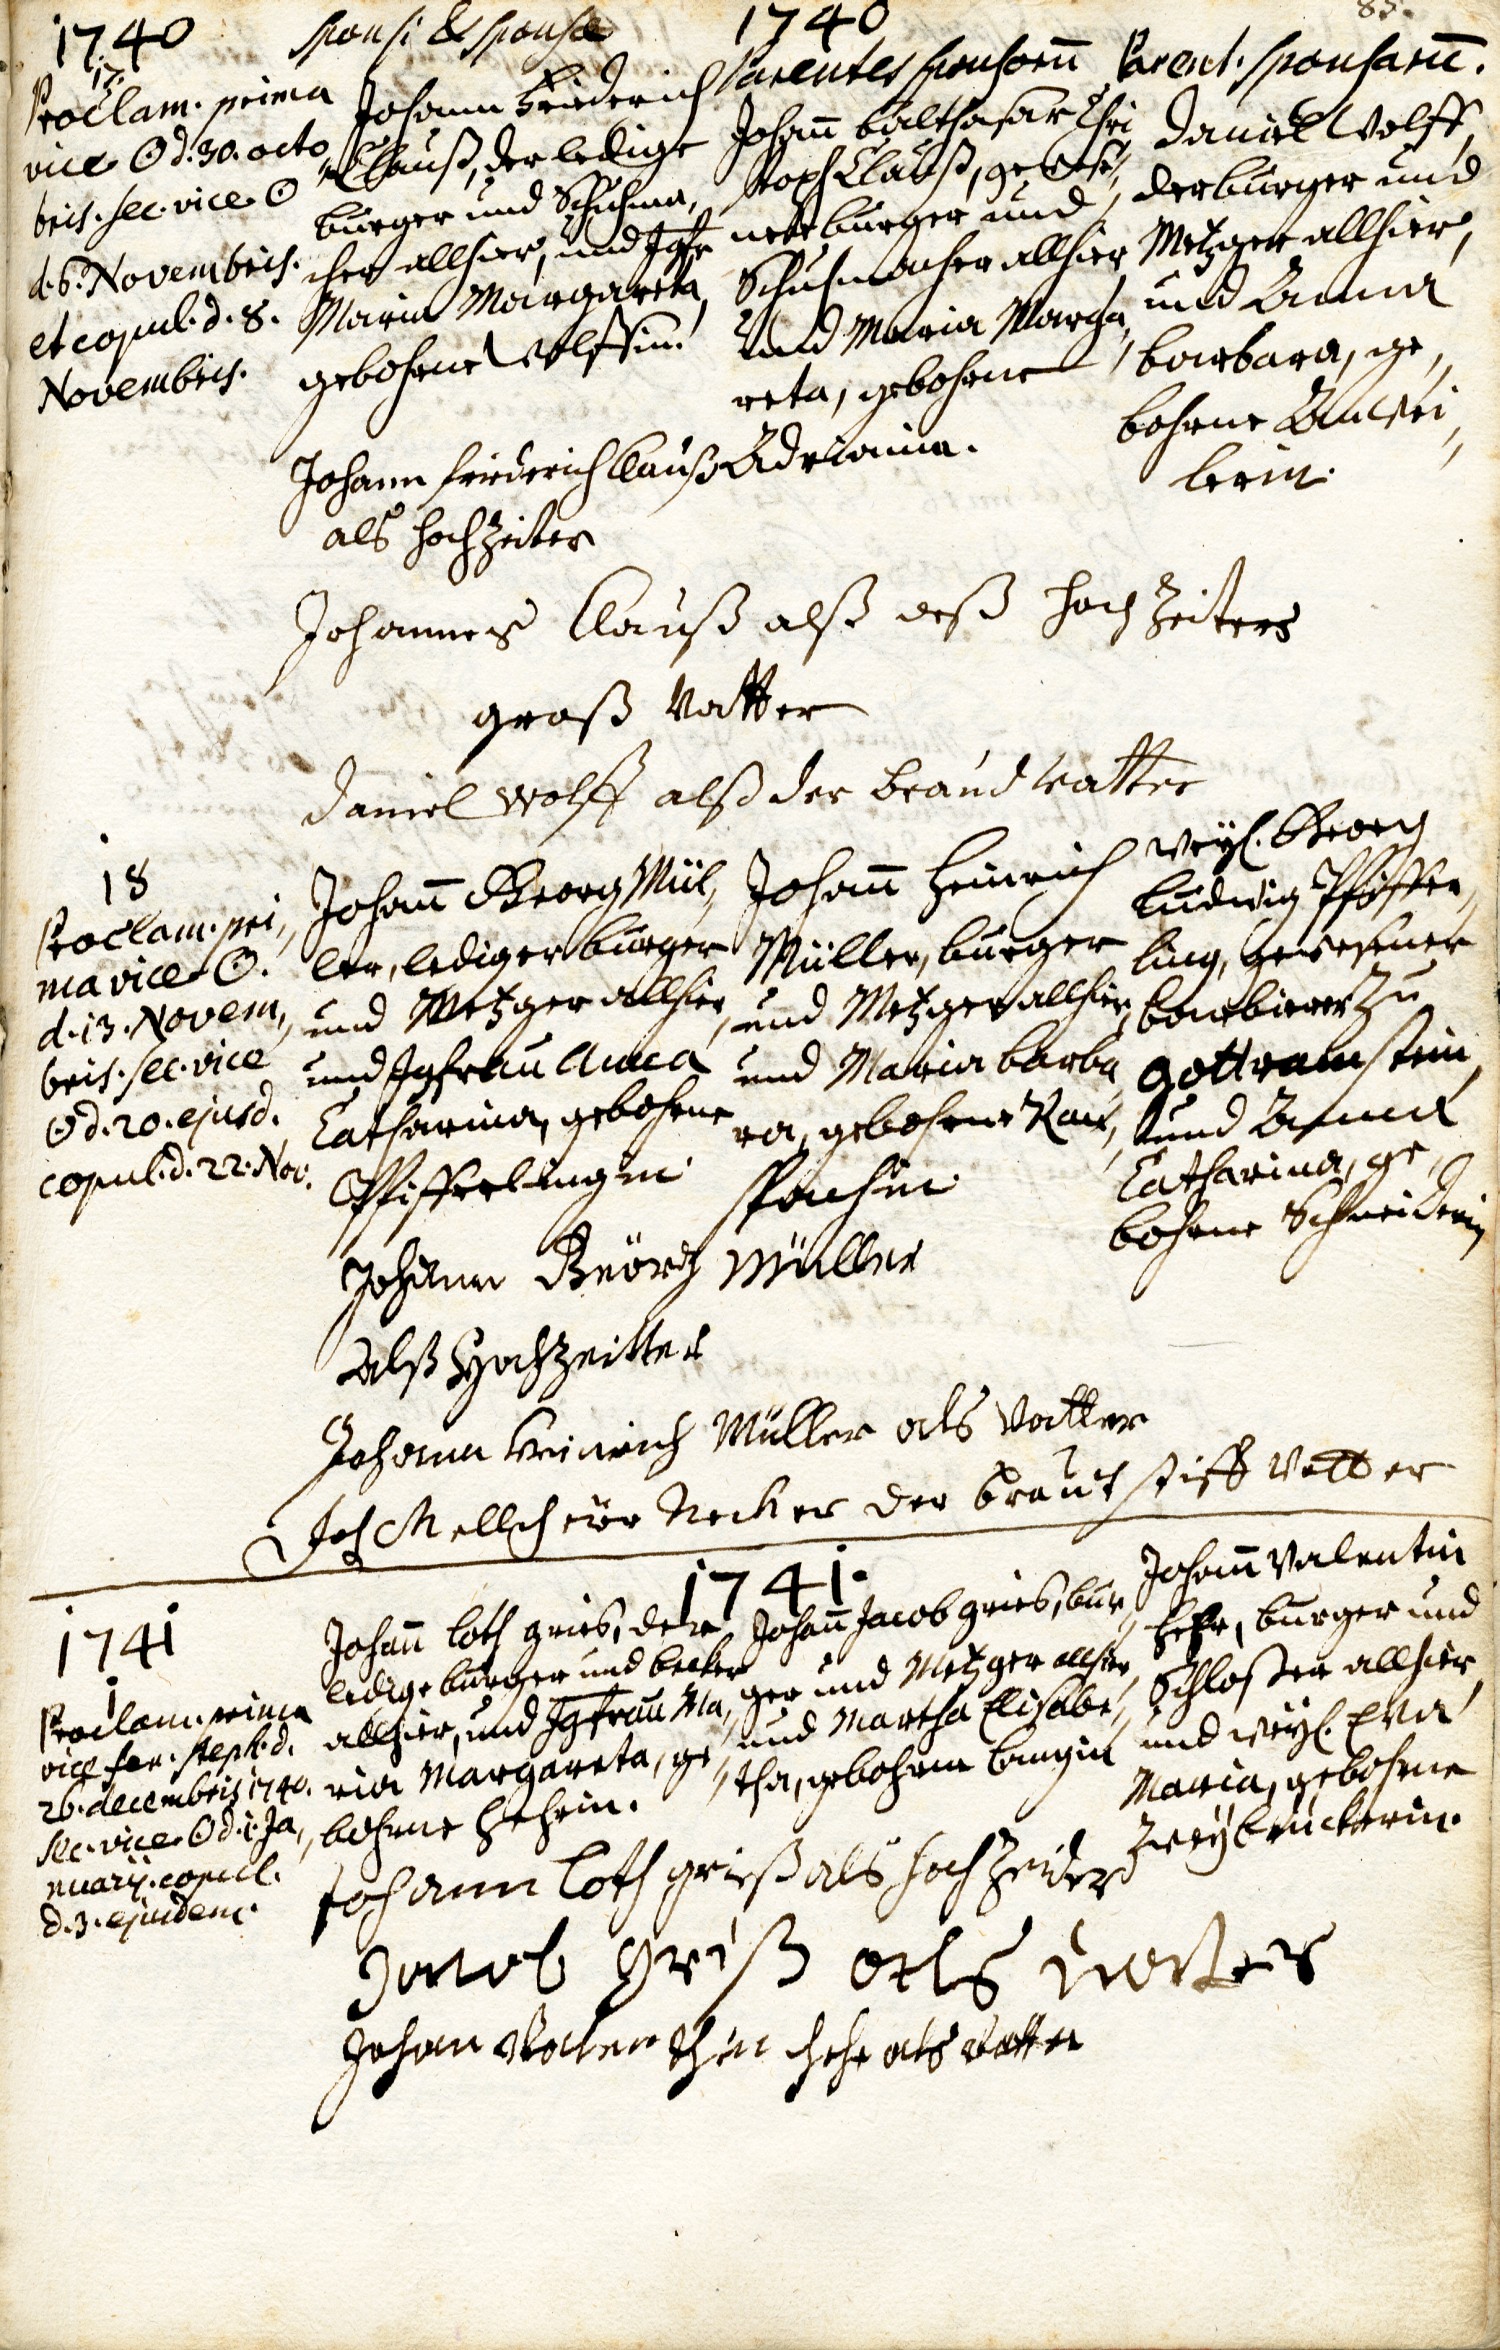 85.
1740
Sponsi & Sponsæ
1740
Parentes sponsorum̄
Parent. sponsarum̄.
17.
Proclam. prima
vice ⊙ d. 30. octo
bris. sec. vice ⊙
d. 6. Novembris.
et copul. d. 8.
Novembris.
Johann Friederich
Clauß, der ledige
burger und Schuhma,
cher allhier, und Jgfr
Maria Margareta,
gebohrne Wolffin.
Johann̄ balthasar Chri,
stoph Clauß, gewese,
ner burger und
Schuhmacher allhier
und Maria Marga,
reta, gebohrne
Adrianin.
Daniel Wolff,
der burger und
Metzger allhier,
und Anna
barbara, ge,
bohrne
lerin.
Johann friederich Clauß
als hochzeiter
Johannes Clauß alß deß hoch Zeiters
groß Vatter
Daniel Wolff alß der braud vatter
18
Proclam. pri,
ma vice ⊙.
d. 13. Novem,
bris. sec. vice
⊙ d. 20. ejusd.
copul. d. 22. Nov.
Johann̄ Georg Mül,
ler, lediger burger
und Metzger allhier,
und Jgfrau Anna
Catharina, gebohrne
Pfifferlingin
Johann̄ Heinrich
Müller, burger
und Metzger allhier,
und Maria barba
ra, gebohrne
weyl. Georg
Ludwig Pfiffer,
ling, gewesener
barbierer zu
Gottramstein,
und Anna
Catharina, ge,
bohrne Schneiderin
Johann Geörg Müller
alß Hochzeitter
Johann Heinrich Müller als Vatter
Joh Mellcheior Necker der braut stiff Vatter
1741.
1741
1
Proclam. prima
vice fer. steph. d.
26. decembris 1740.
sec. vice ⊙ d. 1. Ja,
nuarij. copul.
d. 3. ejusdem.
Johann̄ Loth Gries, der
ledige burger und becker
allhier, und Jgfrau Ma,
ria Margareta, ge,
bohrne Hehrin.
Johann̄ Jacob Gries, bur,
ger und Metzger allhier,
und Martha Elisabe,
tha, gebohrne Langin
Johann̄ Valentin
Hehr, burger und
Schlosser allhier,
und weyl. Eva
Maria, gebohrne
Zweybrückerin.
Johann Loth grieß als hoch Zeider
Jacob Griß als vatter
Johan Valenthin Hehr als vatter